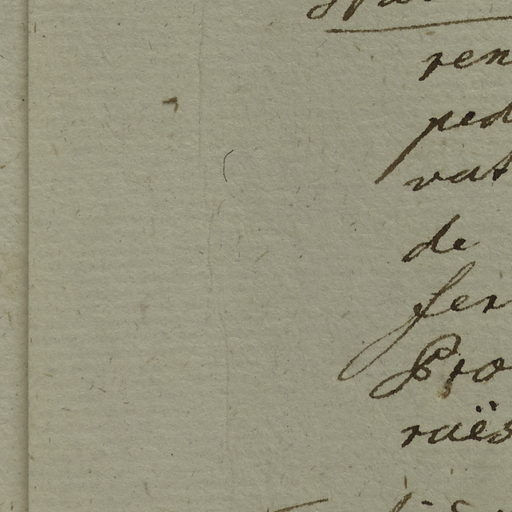 ren
ped
vat
de
fer
Pro
raës